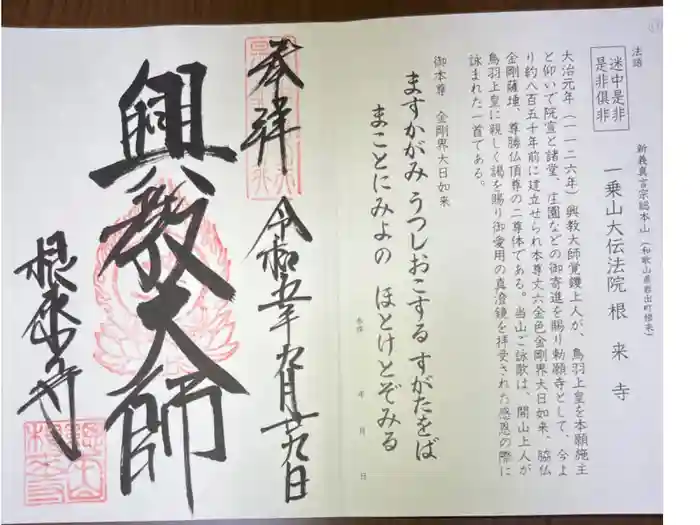 法話
迷中是非
是非倶非
新義真言宗総本山（和歌山県岩出町根来）
一乗山大伝法院 根来寺
大治元年（一一二六年）興教大師覚鑁上人が、鳥羽上皇を本願施主
と仰いで院宣と諸堂、庄園などの御寄進を賜り勅願寺として、今よ
り約八百五十年前に建立せられ本尊丈六金色金剛界大日如来、脇仏
金剛薩埵、尊勝仏頂尊の二尊体である。当山ご詠歌は、開山上人が
鳥羽上皇に親しく謁を賜り御愛用の真澄鏡を拝受された感恩の際に
詠まれた一首である。
御本尊 金剛界大日如来
ますかがみ うつしおこする すがたをば
まことにみよの ほとけとぞみる
奉拝 年 月 日
奉拝
令和五年九月廿九日
興教大師
根来寺